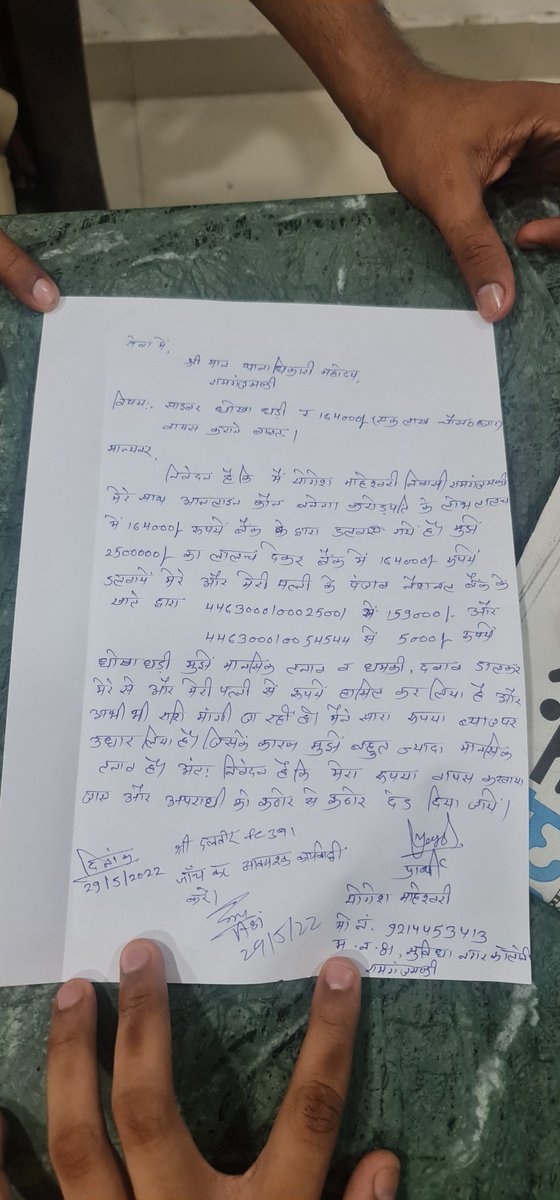 सेवा में,
श्री मान थानाधिकारी महोदय,
रामगंजमण्डी
विषय:- साइबर धोखा धड़ी व 164000/- (एक लाख चौसठ हजार)
वापस कराने बाबत।
मान्यवर,
निवेदन है कि मैं योगेश माहेश्वरी निवासी रामगंजमण्डी
मेरे साथ आनलाइन कौन बनेगा करोड़पति के लोभ लालच
में 164000/- रूपयें बैंक के द्वारा डलवाए गयें है। मुझें
2500000/- का लालच देकर बैंक में 164000/- रूपयें
डलवायें मेरे और मेरी पत्नी के पंजाब नैशनल बैंक के
खाते द्वारा 4463000100025001 में 159000/- और
446300010054544 से 5000/- रूपयें
धोखा धड़ी मुझें मानसिक तनाव व धमकी, दबाव डालकर
मेरे से और मेरी पत्नी से रूपयें हासिल कर लिया है और
अभी भी राशि मांगी जा रही है। मैंने सारा रूपया ब्याज पर
उधार लिया है। जिसके कारण मुझें बहुत ज्यादा मानसिक
तनाव है। अंत: निवेदन है कि मेरा रूपया वापस करवाया
जाए और अपराधी को कठोर से कठोर दंड दिया जायें।
दिनांक
29/5/2022
श्री दलवीर FC 391
जाँच कर आवश्यक कार्यवाही
करें।
29/5/22
प्रार्थी
योगेश माहेश्वरी
मो नं. 9214453413
म. न. 81, सुविधा नगर कॉलोनी
रामगंजमण्डी